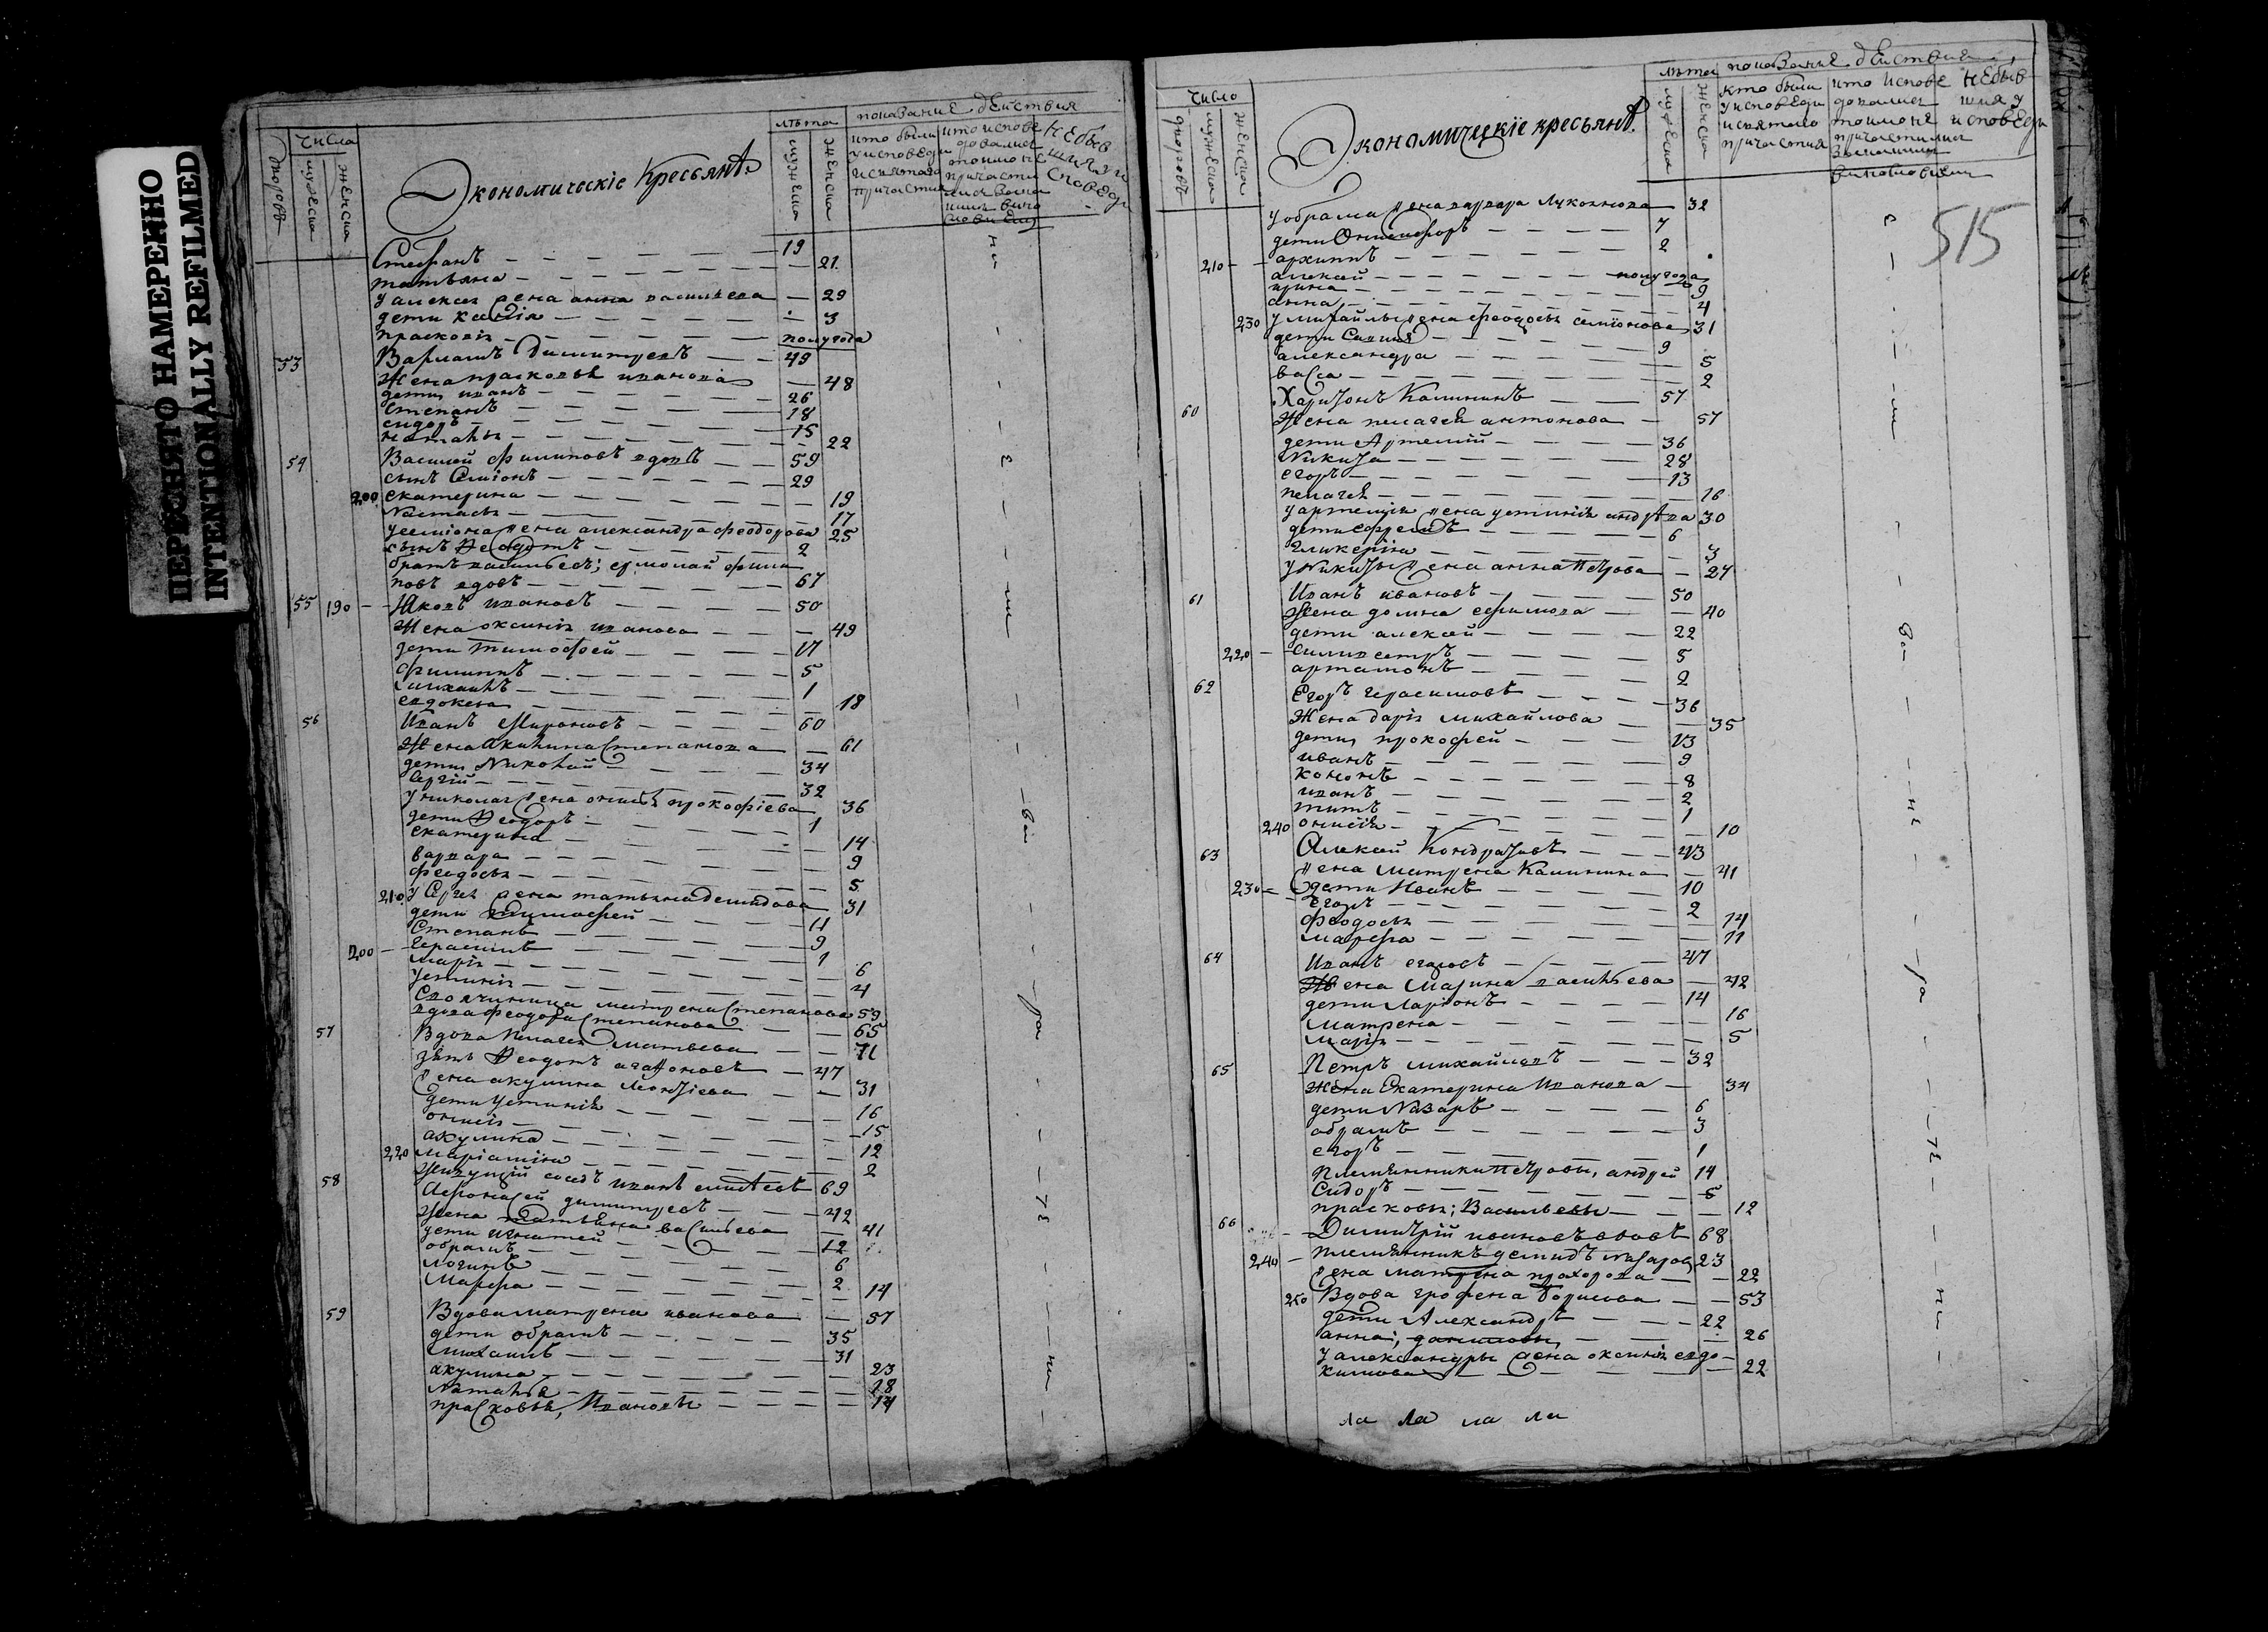 ПЕРЕСНЯТО НАМЕРЕННО
INTENTIONALLY REFILMED
числа
дворовъ
мужеска
женска
Экономическіе Крестьянѣ
лѣта
мужеска
женска
показание дѣиствия
кто были у исповеди и святаго причастия
кто испове довалися токмо не причасти
не быв шия у и споведи
Стефанъ 19
татьяна 21
у алексея жена анна василева 29
дети ксенія 3
прасковія полугода
53 Варламъ Димитревъ 49
Жена прасковья иванова 48
дети иванъ 26
степанъ 18
сидоръ 15
наталья 22
54 Василей филиповъ вдовъ 59
сынъ Семіонъ 29
200 екатерина 19
Настасья 17
у семіона жена александра феодорова 25
сынъ Феодотъ 2
братъ васильевъ; ермолай фили
повъ вдовъ 67
55 190 Яковъ ивановъ 50
Жена оксинія иванова 49
дети тимофей 17
филиппъ 5
михаилъ 1
евдокея 18
56 Иванъ Мироновъ 60
Жена Акилина Степанова 61
дети Николай 34
Сергій 32
у николая жена онисья прокофіева 36
дети Феодоръ 1
екатерина 14
варвара 9
феодосья 5
210 у Сергея жена татьяна демидова 31
дети тимофей 11
Степанъ 9
200 герасимъ 1
марія 6
устинія 4
Своячиница матрена Степанова 59
вдова феодора Степанова 65
57 Вдова Пелагея матвеева 71
зять Феодотъ агафоновъ 47
жена акулина Леонтіева 31
дети Устинія 16
онисія 15
акулина 12
220 Маріамна 2
Живущій соседъ иванъ елисѣевъ 69
58 Афонасей димитревъ 42
Жена татьяна васильева 41
дети игнатей 12
обрамъ 6
логинъ 2
Марфа 14
59 Вдова матрена иванова 57
дети обрамъ 35
михаилъ 31
акулина 23
Наталья 18
прасковья, Ивановы 14
515
число
дворовъ
мужеска
женска
Экономичецкіе кресьянѣ
лѣта
мужеска
женска
показание дѣиствия
кто были у исповеди и святаго причастия
кто испове довалися токмо не причастилися
не быв шия у исповеди
у обрама жена варвара Лукоянова 32
дети Онисифоръ 7
210 архиппъ 2
алексей полугода
ирина 9
анна 4
230 у михайлы жена феодосья семіонова 31
дети 9
александра 5
васса 2
60 Харитонъ Калининъ 57
Жена пелагея антонова 57
дети Артемій 36
Никита 28
егоръ 13
пелагея 16
у артемія жена устинія андрѣева 30
дети ефремъ 6
гликерія 3
у Никиты жена анна Петрова 27
61 Иванъ ивановъ 50
Жена домна ефимова 40
дети алексей 22
220 силивестръ 5
артамонъ 2
62 Егоръ герасимовъ 36
Жена дарія михайлова 35
дети прокофей 13
иванъ 9
кононъ 8
иванъ 2
титъ 1
240 онисія 10
63 Алексей Кондратовъ 43
жена Матрена Калинина 41
230 дети Иванъ 10
Егоръ 2
феодосья 14
марфа 11
64 Иванъ егоровъ 47
Жена Марина васильева 42
дети Ларіонъ 14
Матрена 16
Марія 5
65 Петръ михайловъ 32
жена Екатерина Иванова 34
дети Назаръ 6
обрамъ 3
егоръ 1
Племянники Петровы, андрей 14
Сидоръ 5
прасковья; Васильевы 12
66 Димитрій ивановъ вдовъ 68
240 племянникъ демидъ Назаров 23
жена матрена прохорова 22
250 Вдова грофена борисова 53
дети Александръ 22
анна; даниловы 26
у александры жена оксинія евдо
кимова 22
ла ла ла ла